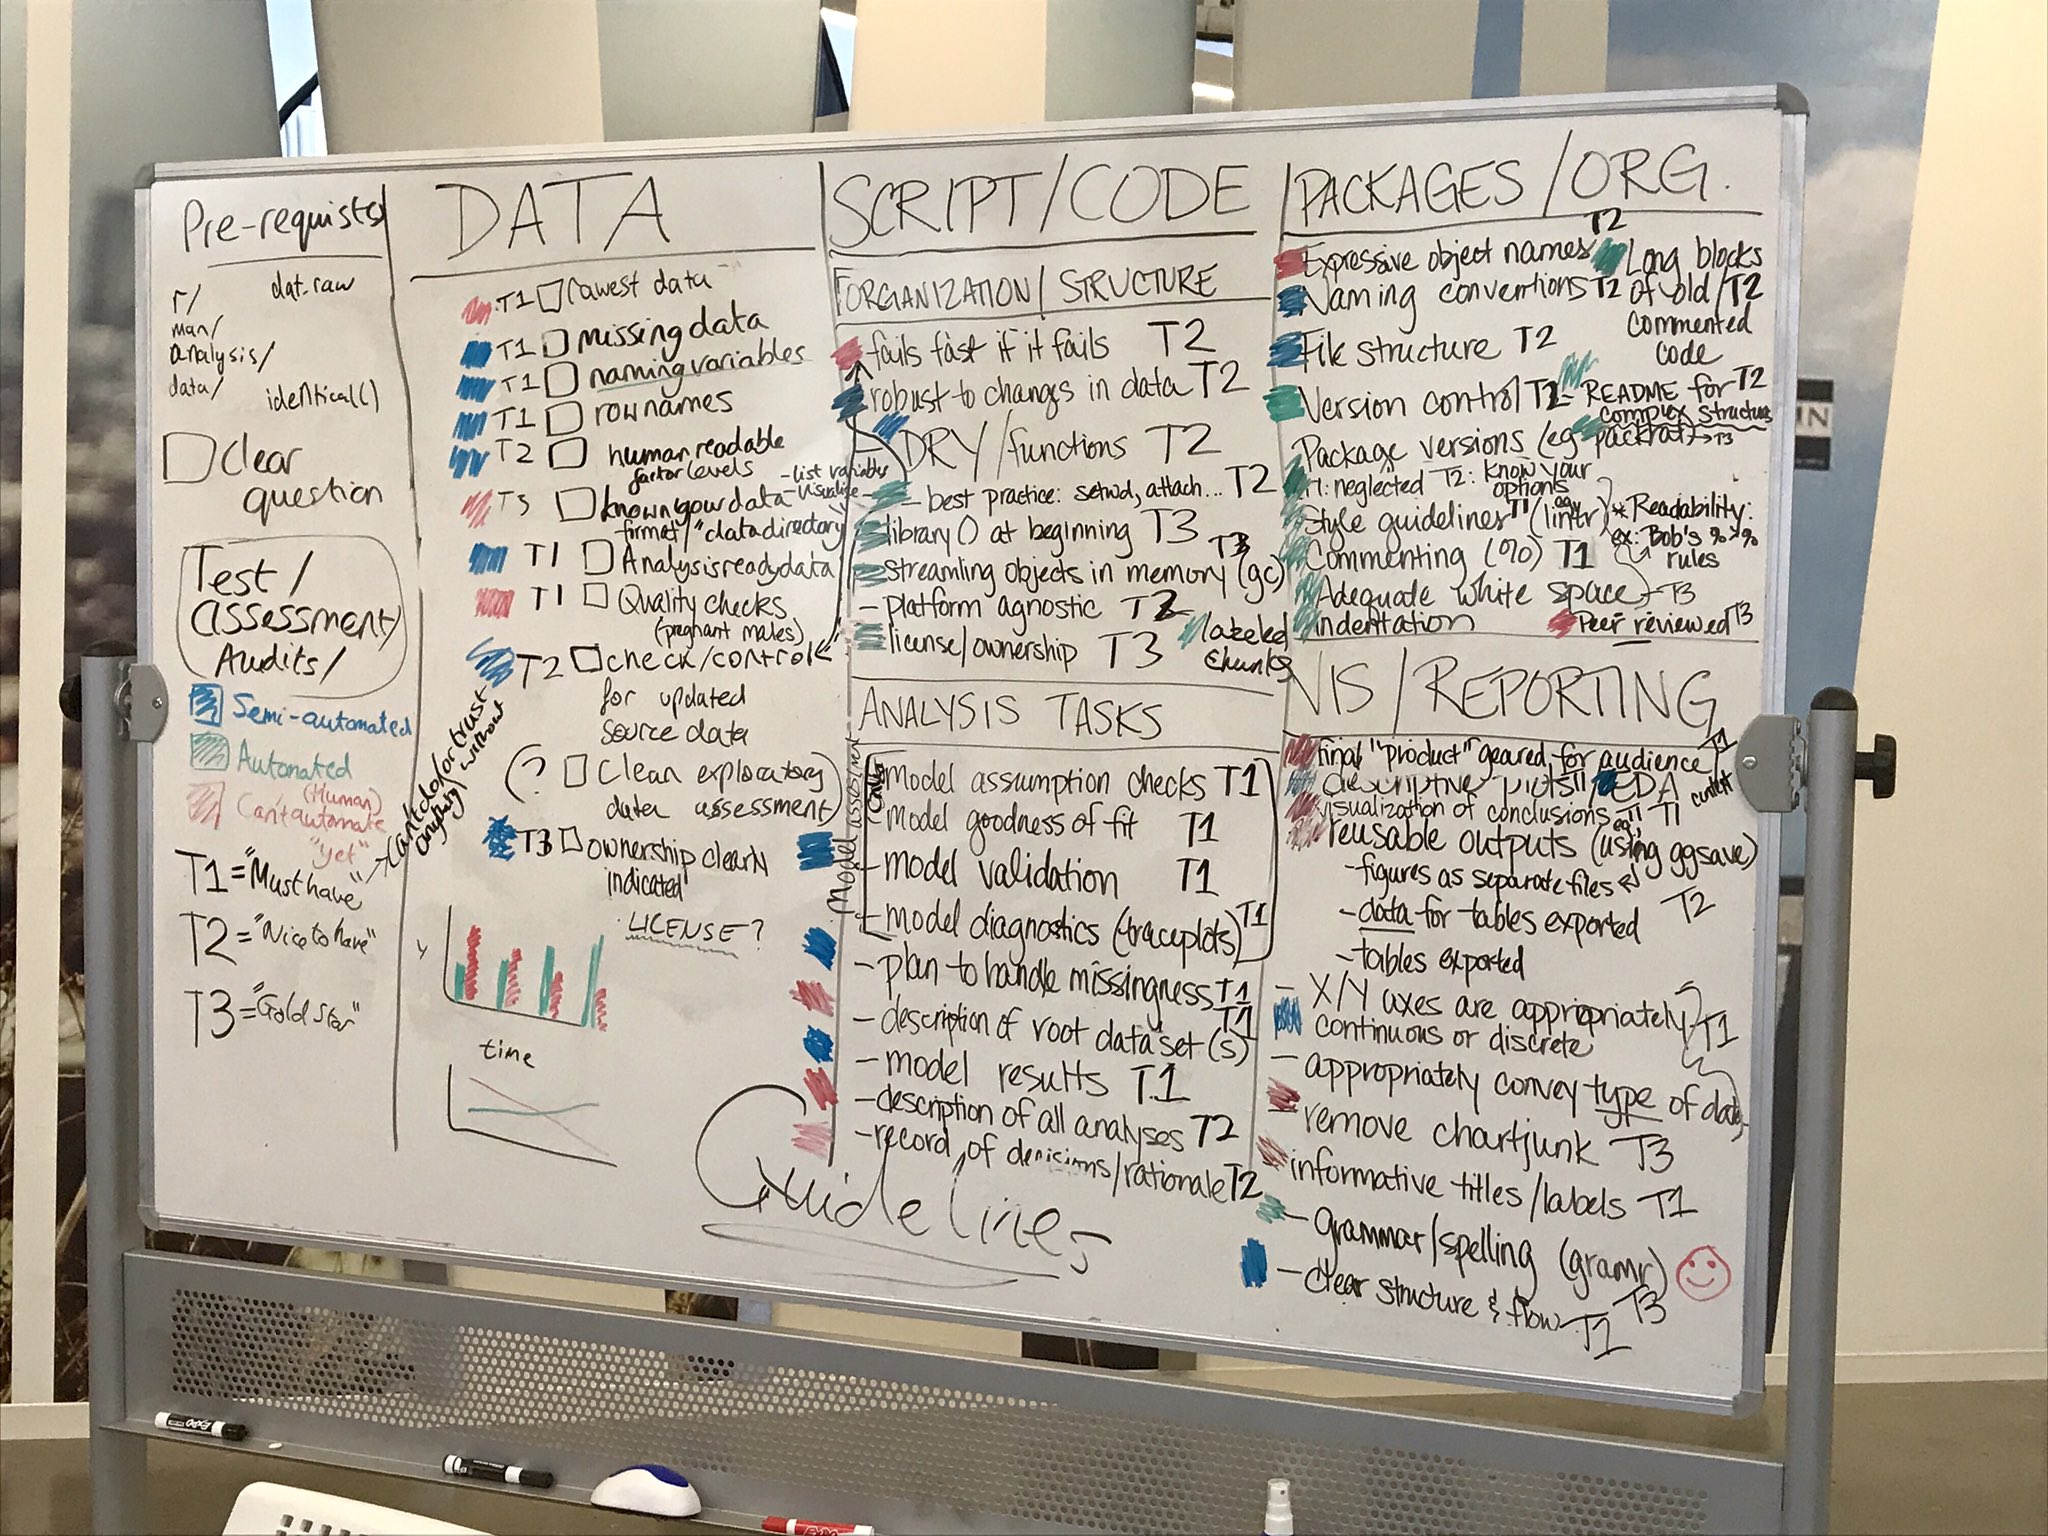 Pre-requists
r/ dat-raw
man/
analysis/
data/ identical()
Clear
question
Test/
assessment/
Audits/
Semi-automated
Automated
(Human)
Can't automate
"yet"
T1="Must have" → can't do or trust
anything without
T2="Nice to have"
T3="Gold Star"
DATA
T1 rawest data
T1 missing data
T1 naming variables
T1 rownames
T2 human readable
factor levels
T3 know your data
- list variables
- visualise
format / "data directory"
T1 Analysis ready data
T1 Quality checks
(pregnant males)
T2 check/control
for updated
source data
(? Clean exploratory
data assessment)
T3 ownership clearly
indicated
LICENSE?
y
time
Guidelines
SCRIPT/CODE
ORGANIZATION/STRUCTURE
fails fast if it fails T2
robust to changes in data T2
DRY/functions T2
- best practice: setwd, attach... T2
library() at beginning T3
T3
streamling objects in memory (gc)
- platform agnostic T2
license/ownership T3
labeled
chunks
ANALYSIS TASKS
Model assessment
- model assumption checks T1
- model goodness of fit T1
- model validation T1
- model diagnostics (traceplots) T1
- plan to handle missingness T1
- description of root dataset(s) T1
- model results T1
- description of all analyses T2
- record of decisions/rationale T2
PACKAGES/ORG.
T2
Expressive object names
Naming conventions T2
File structure T2
Version control T2
Long blocks
of old/ T2
commented
code
- README for T2
complex structure
Package versions (eg packrat) → T3
T1: neglected T2: know your
options
Style guidelines T1 (eg lintr)
* Readability:
ex: Bob's %>%
rules
Commenting (%) T1
Adequate white space - T3
indentation
Peer reviewed T3
VIS/REPORTING
final "product" geared for audience T1
descriptive plots // EDA
visualization of conclusions T1
reusable outputs (eg using ggsave)
- figures as separate files
- data for tables exported T2
- tables exported
- X/Y axes are appropriately
continuous or discrete T1
- appropriately convey type of data
- remove chartjunk T3
- informative titles/labels T1
- grammar/spelling (gramr)
T3
- clear structure & flow T1
EXPO